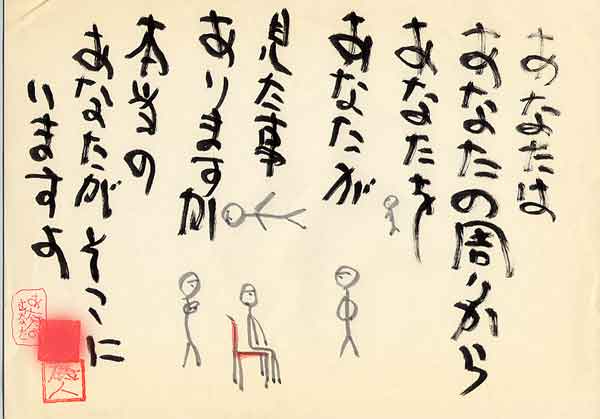 あなたは
あなたの周りから
あなたを
あなたが
見た事
ありますか
本当の
あなたがそこに
いますよ